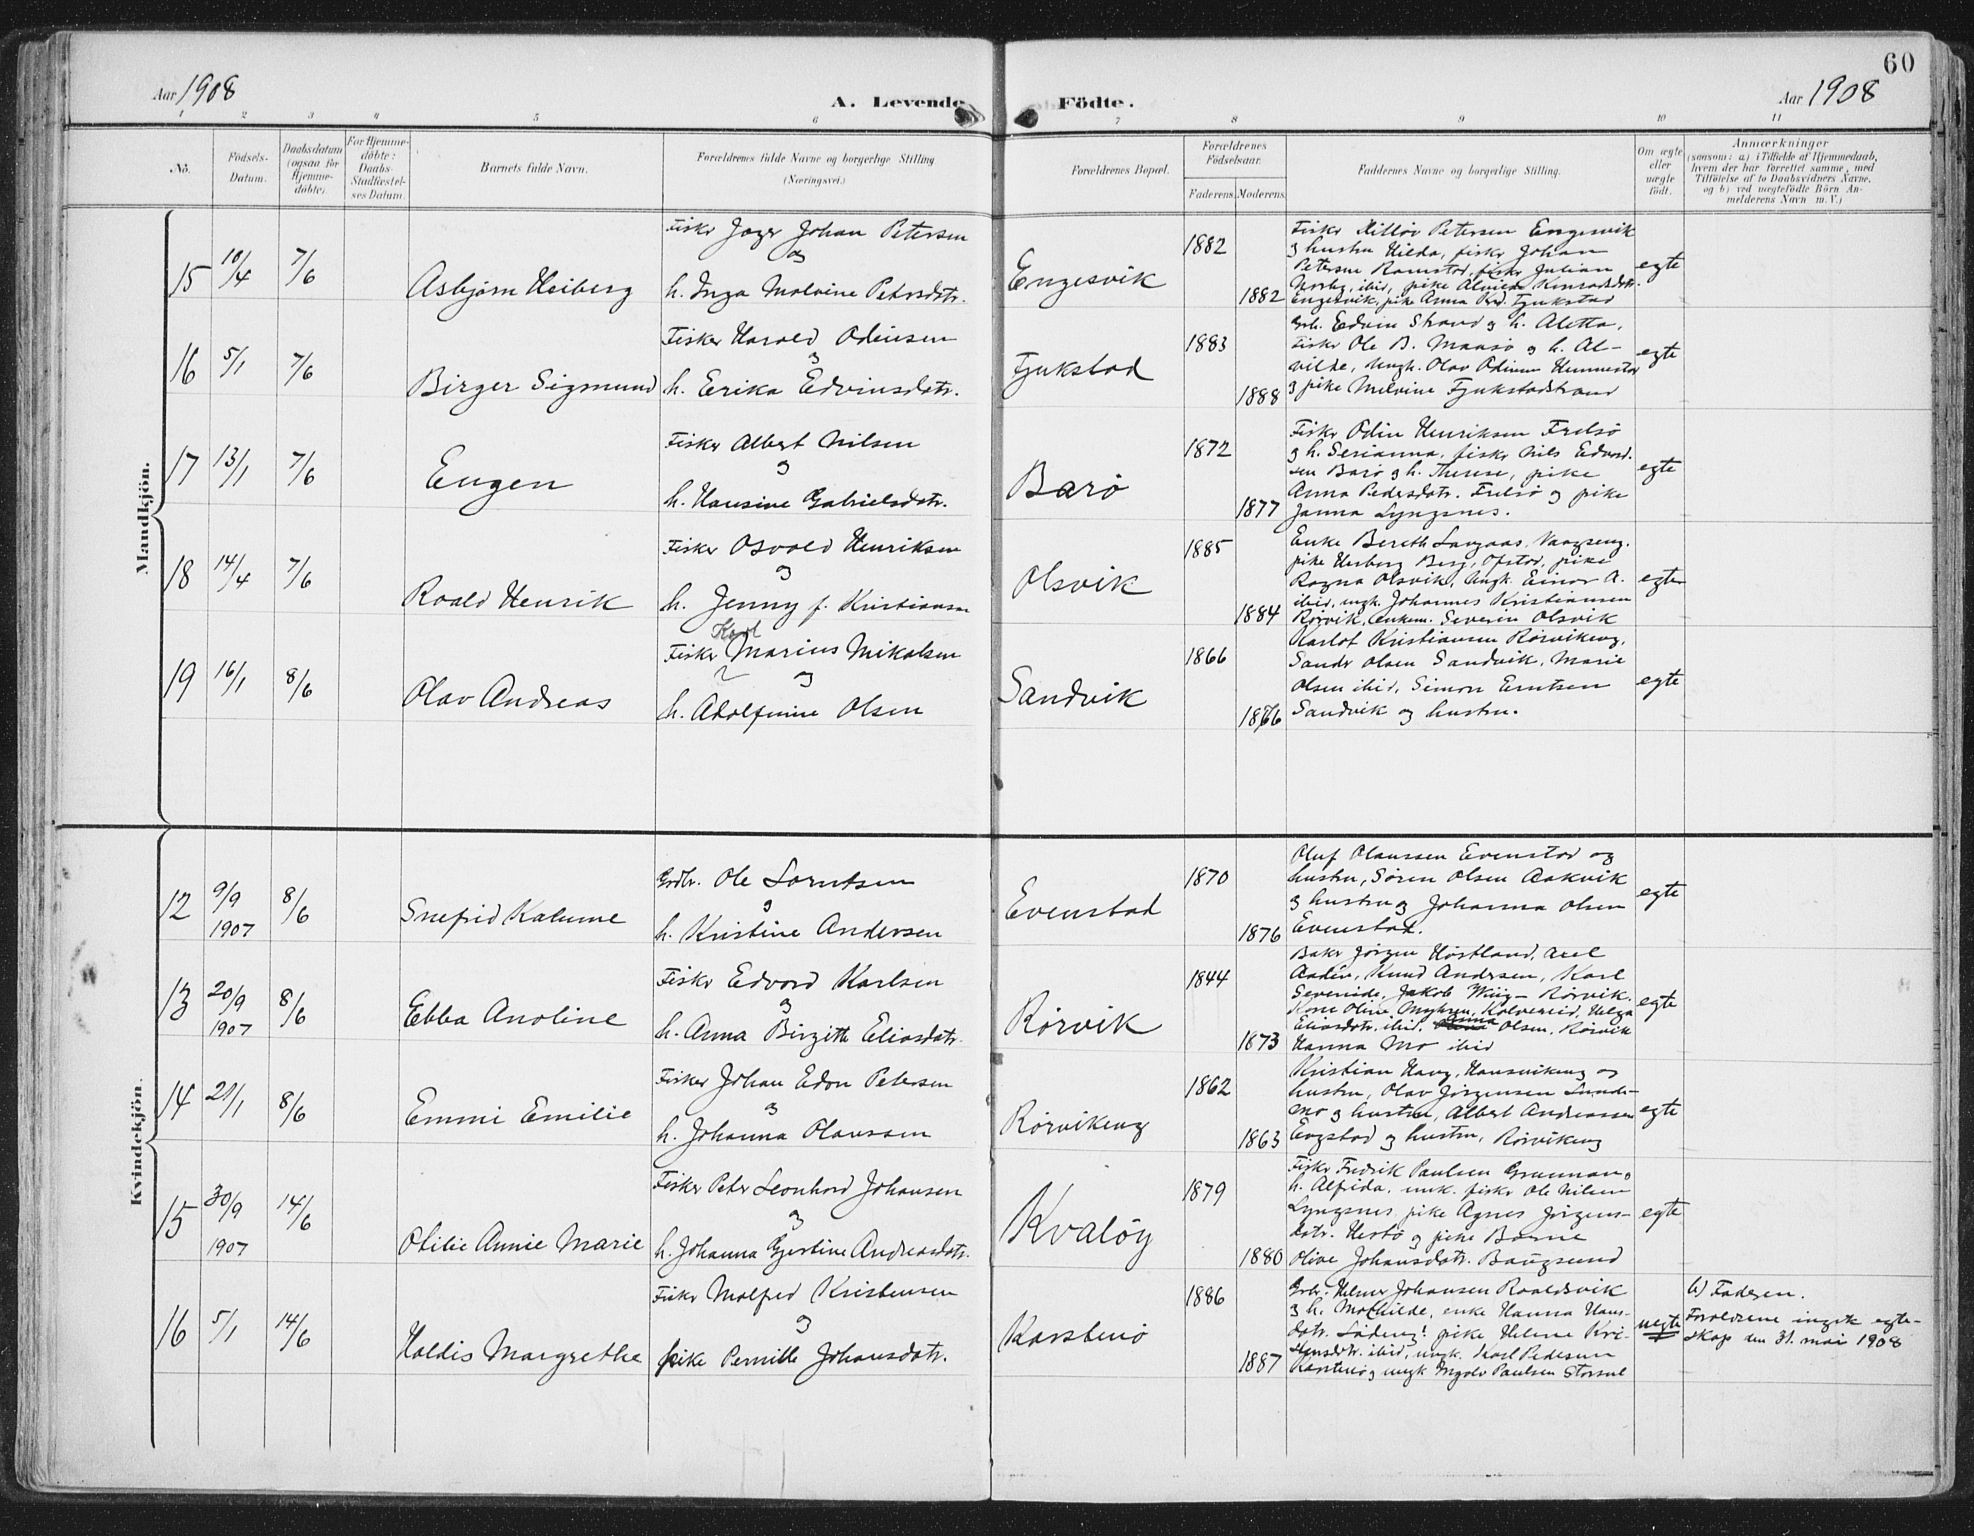 60
Aar 1908
A. Levende Födte.
Aar 1908
1 2 3 4 5 6 7 8 9 10 11
No.
Födsels-Datum.
Daabsdatum (ogsaa for Hjemme-döbte)
For Hjemme-döbte: Daabs-Stadfæstel-ses Datum.
Barnets fulde Navn.
Forældrenes fulde Navne og borgerlige Stilling (Næringsvei.)
Forældrenes Bopæl.
Forældrenes Födselsaar.
Faderens Moderens
Faddernes Navne og borgerlige Stilling.
Om ægte eller uægte födt.
Anmærkninger
(saasom: a) i Tilfælde af Hjemmedaab,
hvem der har forrettet samme, med
Tilföielse af to Daabsvidners Navne,
og b) ved uægtefödte Börn An-
melderens Navn m. V.)
Mandkjön.
15 10/4 7/6 Asbjørn Heiberg
Fisker Johan Petersen
og
h. Inga Malvine Petersdatr.
Engesvik 1882 1882
Petersen Engesvik
og hustru Hilda, fisker Johan
egte
16 5/1 7/6 Birger Sigmund
Fisker Harald Odinsen
og
h. Erika Edvinsdatr.
Fjukstad 1883 1888
Grb. Edvin Strand og h. Aletta,
Fisker Ole B. Maasø og h. Al-
vilde, ungk. Olav Odinsen
og pike Milvine Fjukstadstrand
egte
17 13/1 7/6 Eugen
Fisker Albert Nilsen
og
h. Hansine Gabrielsdatr.
Barø 1872 1877
Fisker Odin Henriksen Frelsø
og h. Serianna, fisker Nils Edvard-
sen Barø og h. Therese, pike
Anna Pedersdatr. Frelsø og pike
Janna Lyngsnes.
egte
18 14/4 7/6 Roald Henrik
Fisker Osvald Henriksen
og
h. Jenny f. Kristiansen
Olsvik 1885 1884
Enke Bereth
pike Berg, pike
Ragna Olsvik, ungk. Einar A.
ibid, ungk. Johannes Kristiansen
Rørvik, enkem. Severin Olsvik
egte
19 16/1 8/6 Olav Andreas
Karl
Fisker Marius Mikalsen
og
h. Adolfine Olsen
Sandvik 1866 1866
Karlot Kristiansen Rørvikeng,
Sander Olsen Sandvik, Marie
Olsen ibid, Simon Erntsen
Sandvik og hustru.
egte
Kvindekjön.
12 9/9 1907 8/6 Snefrid
Grdbr. Ole Lorntsen
og
h. Kristine Andersen
Evenstad 1870 1876
Oluf Olaussen Evenstad og
hustru, Søren Olsen Aakvik
og hustru og Johanna Olsen
Evenstad.
egte
13 20/9 1907 8/6 Ebba Anoline
Fisker Edvard Karlsen
og
h. Anna Birgitte Eliasdatr.
Rørvik 1844 1873
Baker Jørgen Høstland, Axel
Knud Andersen, Karl
Jakob Wiig Rørvik.
Kone Oline Helga
Eliasdatr. ibid, Anna Olsen, Rørvik
Hanna Mo ibid
egte
14 21/1 8/6 Emmi Emilie
Fisker Johan Edon Petersen
og
h. Johanna Olaussen
Rørvikeng 1862 1863
Kristian Haug, Hansvikeng og
hustru, Olav Jørgensen Lunde-
mo og hustru, Albert Andreassen
Engstad og hustru, Rørvikeng
egte
15 30/9 1907 14/6 Otilie Annie Marie
Fisker Peter Leonhard Johansen
og
h. Johanna Gjertine Andreasdatr.
Kvaløy 1879 1880
Fisker Fredrik Paulsen
h. Alfrida, unk. fisker Ole Nilsen
Lyngsnes, pike Agnes Jørgens-
datr. og pike
Olive Johansdatr. Baugsund
egte
16 5/1 14/6 Haldis Margrethe
Fisker Malfred Kristensen
og
pike Pernille Johansdatr.
Karstenø 1886 1887
Grbr. Helmer Johansen Raaldsvik
og h. Mathilde, enke Hanna Hans-
datr. pike Helene Kri-
stensdtr. ibid, ungk. Karl Pedersen
Karstenø og ungk Ingolv Paulsen
uegte
b) Faderen.
Foreldrene ingik egte-
skap den 31. mai 1908